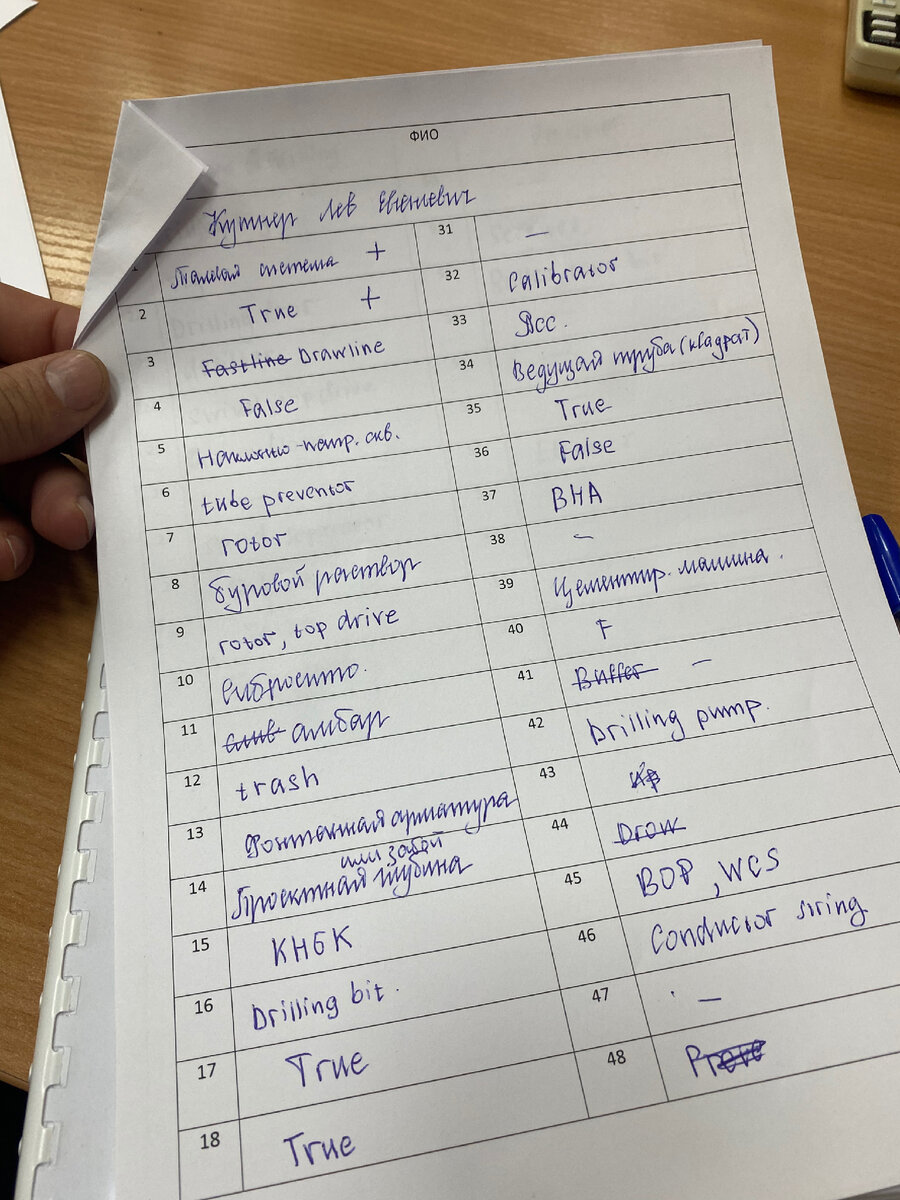 ФИО
Кутнер Лев Евгеньевич
1 Талевая система +
2 True +
3 Fastline Drawline
4 False
5 Наклонно-напр. скв.
6 tube preventor
7 rotor
8 буровой раствор
9 rotor, top drive
10 вибросито.
11 амбар
12 trash
13 Фонтанная арматура
или забой
14 Проектная глубина
15 КНБК
16 Drilling bit.
17 True
18 True
31 —
32 Calibrator
33 Ясс.
34 Ведущая труба (квадрат)
35 True
36 False
37 BHA
38 –
39 Цементир. машина.
40 F
41 Buffer —
42 Drilling pump.
43
44 Draw
45 BOP, WCS
46 Conductor string
47 —
48